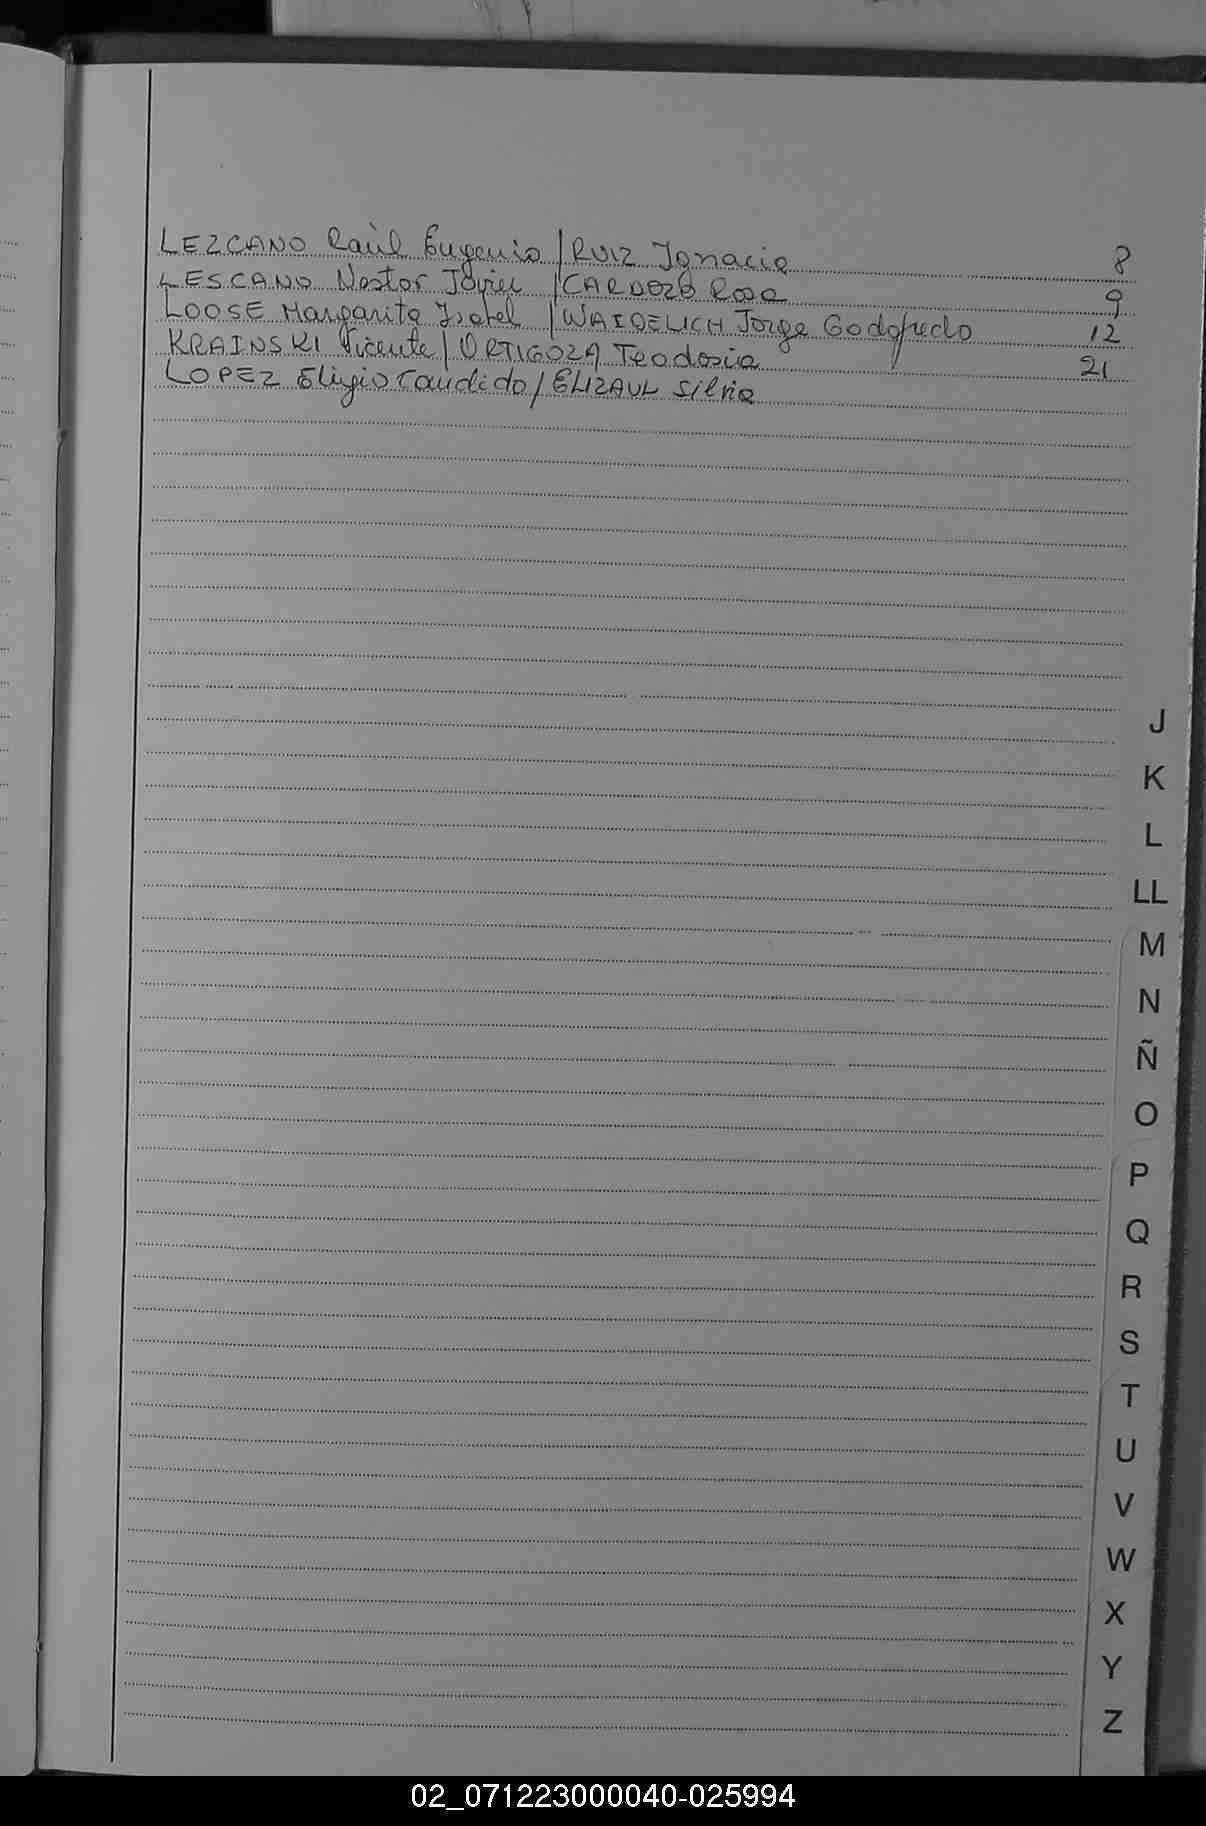 LEZCANO Raúl Eugenio / RUIZ Ignacia 8
LESCANO Nestor Javier / CARDOZO Rosa 9
LOOSE Margarita Isabel / WAIDELICH Jorge Godofredo 12
KRAINSKI Vicente / ORTIGOZA Teodosia 21
LOPEZ Eligio Candido / ELIZAUL Silvia
J
K
L
LL
M
N
Ñ
O
P
Q
R
S
T
U
V
W
X
Y
Z
02_071223000040-025994